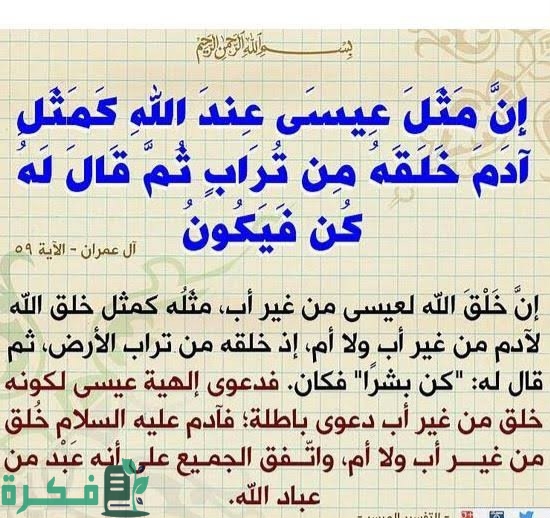 بسم الله الرحمن الرحيم
إِنَّ مَثَلَ عِيسَى عِندَ اللهِ كَمَثَلِ
آدَمَ خَلَقَهُ مِن تُرَابٍ ثُمَّ قَالَ لَهُ
كُن فَيَكُونُ
آل عمران - الآية ٥٩
إنَّ خَلْقَ الله لعيسى من غير أب، مثَلُه كمثل خلق الله
لآدم من غير أب ولا أم، إذ خلقه من تراب الأرض، ثم
قال له: "كن بشرًا" فكان. فدعوى إلهية عيسى لكونه
خلق من غير أب دعوى باطلة؛ فآدم عليه السلام خُلق
من غيــر أب ولا أم، واتّـفق الجميع على أنه عَبْد من
عباد الله.
فكرة
- التفسير الميسر -